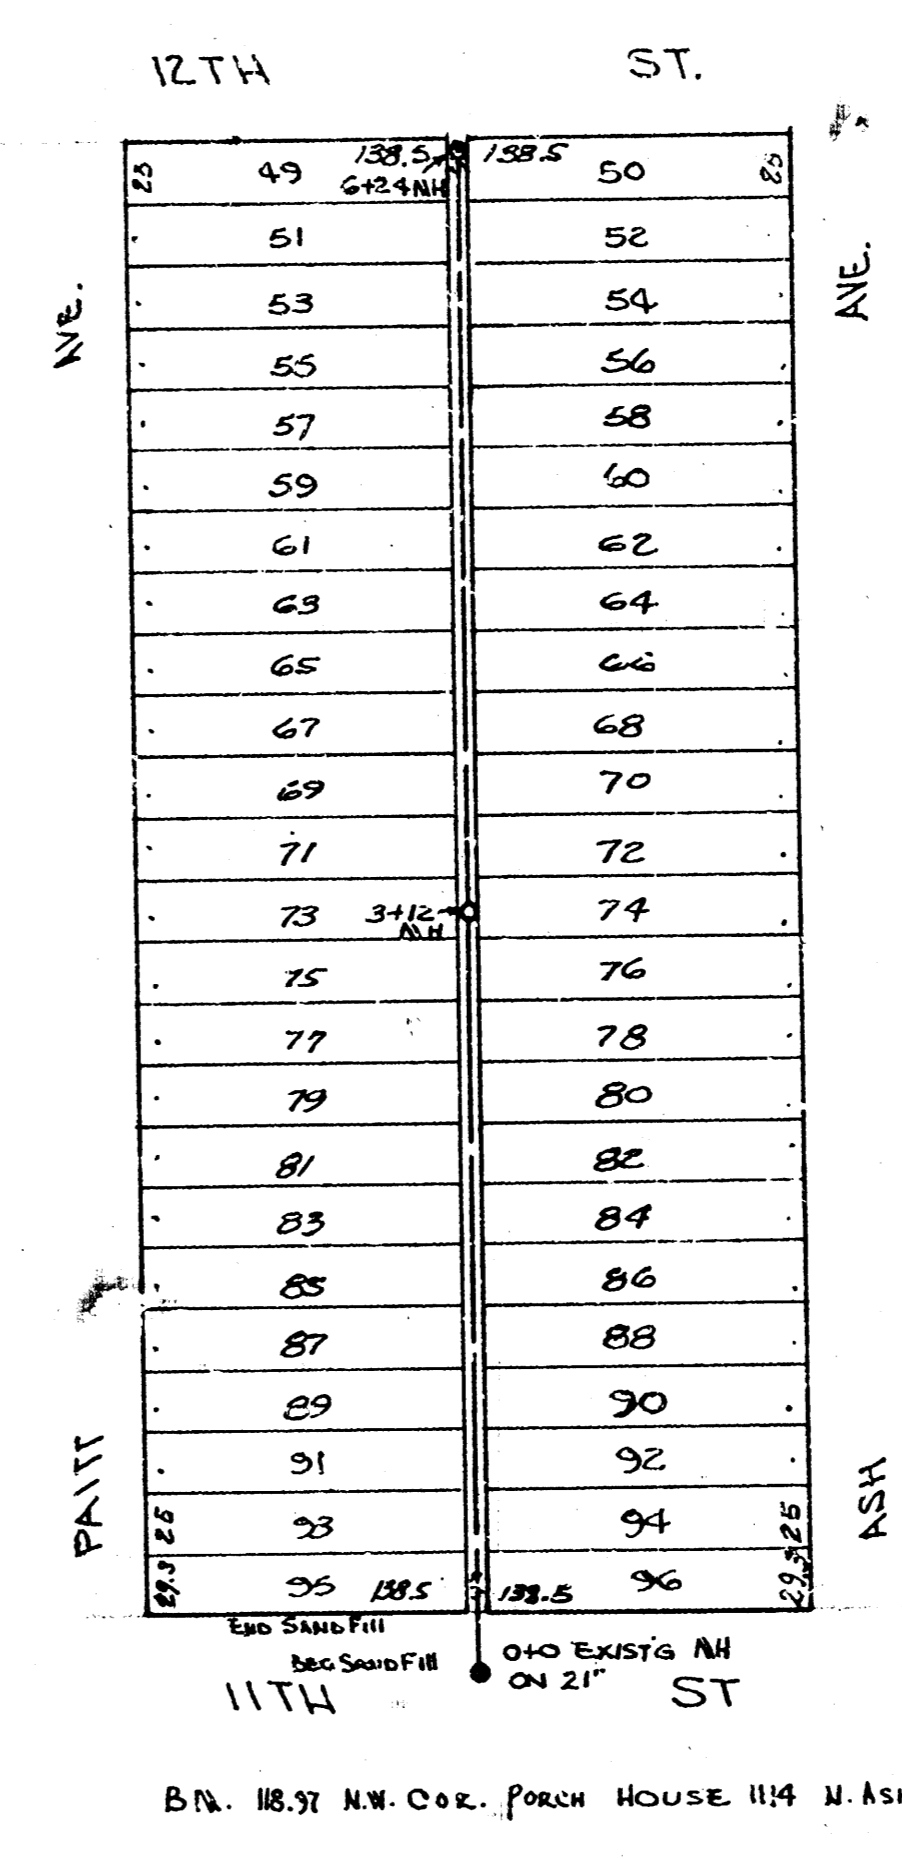 12TH ST.
23 49 138.5 138.5 50 25
6+24 MH
51 52
53 54
55 56
57 58
59 60
61 62
63 64
65 66
67 68
69 70
71 72
73 3+12 74
MH
75 76
77 78
79 80
81 82
83 84
85 86
87 88
89 90
91 92
25 93 94 25
29.3 95 138.5 138.5 96 29.3
AVE.
PAITT
AVE.
ASH
END SAND Fill
BEG SAND Fill
0+0 EXIST'G MH
ON 21"
11TH ST
B.M. 118.97 N.W. COR. PORCH HOUSE 1114 N. ASH